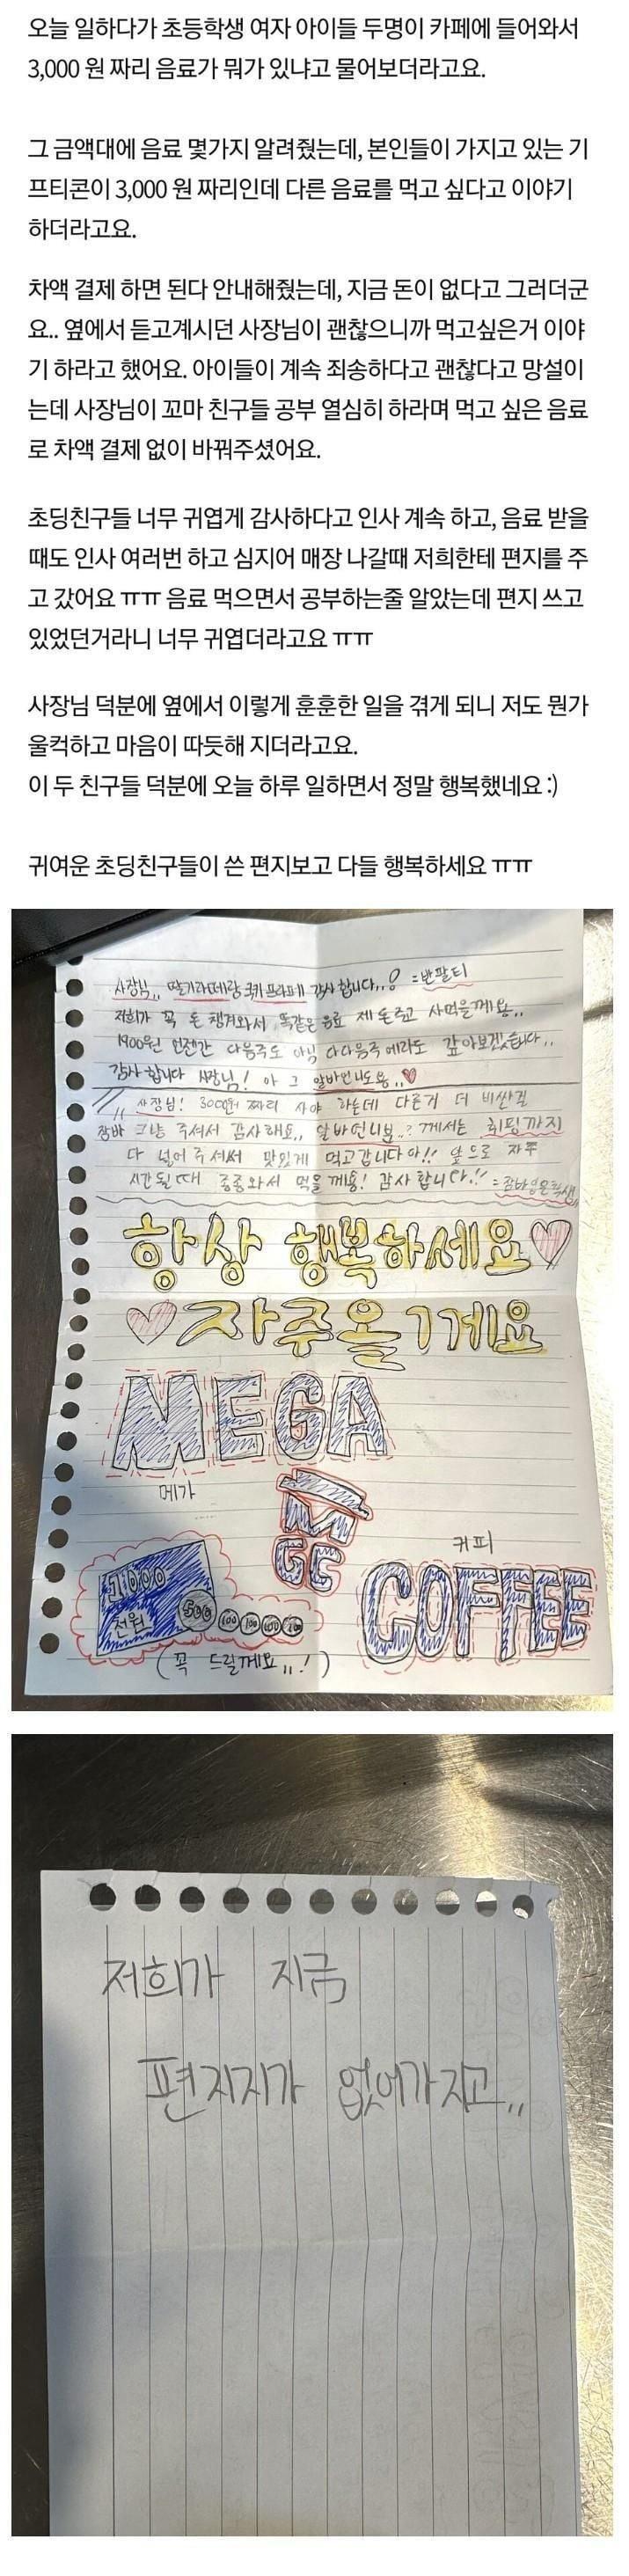 오늘 일하다가 초등학생 여자 아이들 두명이 카페에 들어와서
3,000 원 짜리 음료가 뭐가 있냐고 물어보더라고요.
그 금액대에 음료 몇가지 알려줬는데, 본인들이 가지고 있는 기
프티콘이 3,000 원 짜리인데 다른 음료를 먹고 싶다고 이야기
하더라고요.
차액 결제 하면 된다 안내해줬는데, 지금 돈이 없다고 그러더군
요.. 옆에서 듣고계시던 사장님이 괜찮으니까 먹고싶은거 이야
기 하라고 했어요. 아이들이 계속 죄송하다고 괜찮다고 망설이
는데 사장님이 꼬마 친구들 공부 열심히 하라며 먹고 싶은 음료
로 차액 결제 없이 바꿔주셨어요.
초딩친구들 너무 귀엽게 감사하다고 인사 계속 하고, 음료 받을
때도 인사 여러번 하고 심지어 매장 나갈때 저희한테 편지를 주
고 갔어요 ㅠㅠ 음료 먹으면서 공부하는줄 알았는데 편지 쓰고
있었던거라니 너무 귀엽더라고요 ㅠㅠ
사장님 덕분에 옆에서 이렇게 훈훈한 일을 겪게 되니 저도 뭔가
울컥하고 마음이 따듯해 지더라고요.
이 두 친구들 덕분에 오늘 하루 일하면서 정말 행복했네요 :)
귀여운 초딩친구들이 쓴 편지보고 다들 행복하세요 ㅠㅠ
사장님,, 딸기라떼랑 쿠키프라페 감사합니다..! =반팔티
저희가 꼭 돈 챙겨와서 똑같은 음료 제 돈주고 사먹을께요..
1900원 언젠간 다음주도 아님 다다음주에라도 갚아보겠습니다..
감사합니다 사장님! 아 그 알바언니도용..♥
사장님! 3000원 짜리 사야 하는데 다른거 더 비싼걸
그냥 주셔서 감사해요.. 알바언니분..? 께서는 휘핑까지
다 넣어주셔서 맛있게 먹고갑니다아!! 앞으로 자주
시간될때 종종와서 먹을께용! 감사합니다!! =잠바입은학생
잠바
항상 행복하세요♡
♡자주올게요
MEGA
메가
M
GC
커피
COFFEE
1000
천원
500 100 100 100 100
(꼭 드릴께요,,!)
저희가 지금
편지지가 없어가지고..